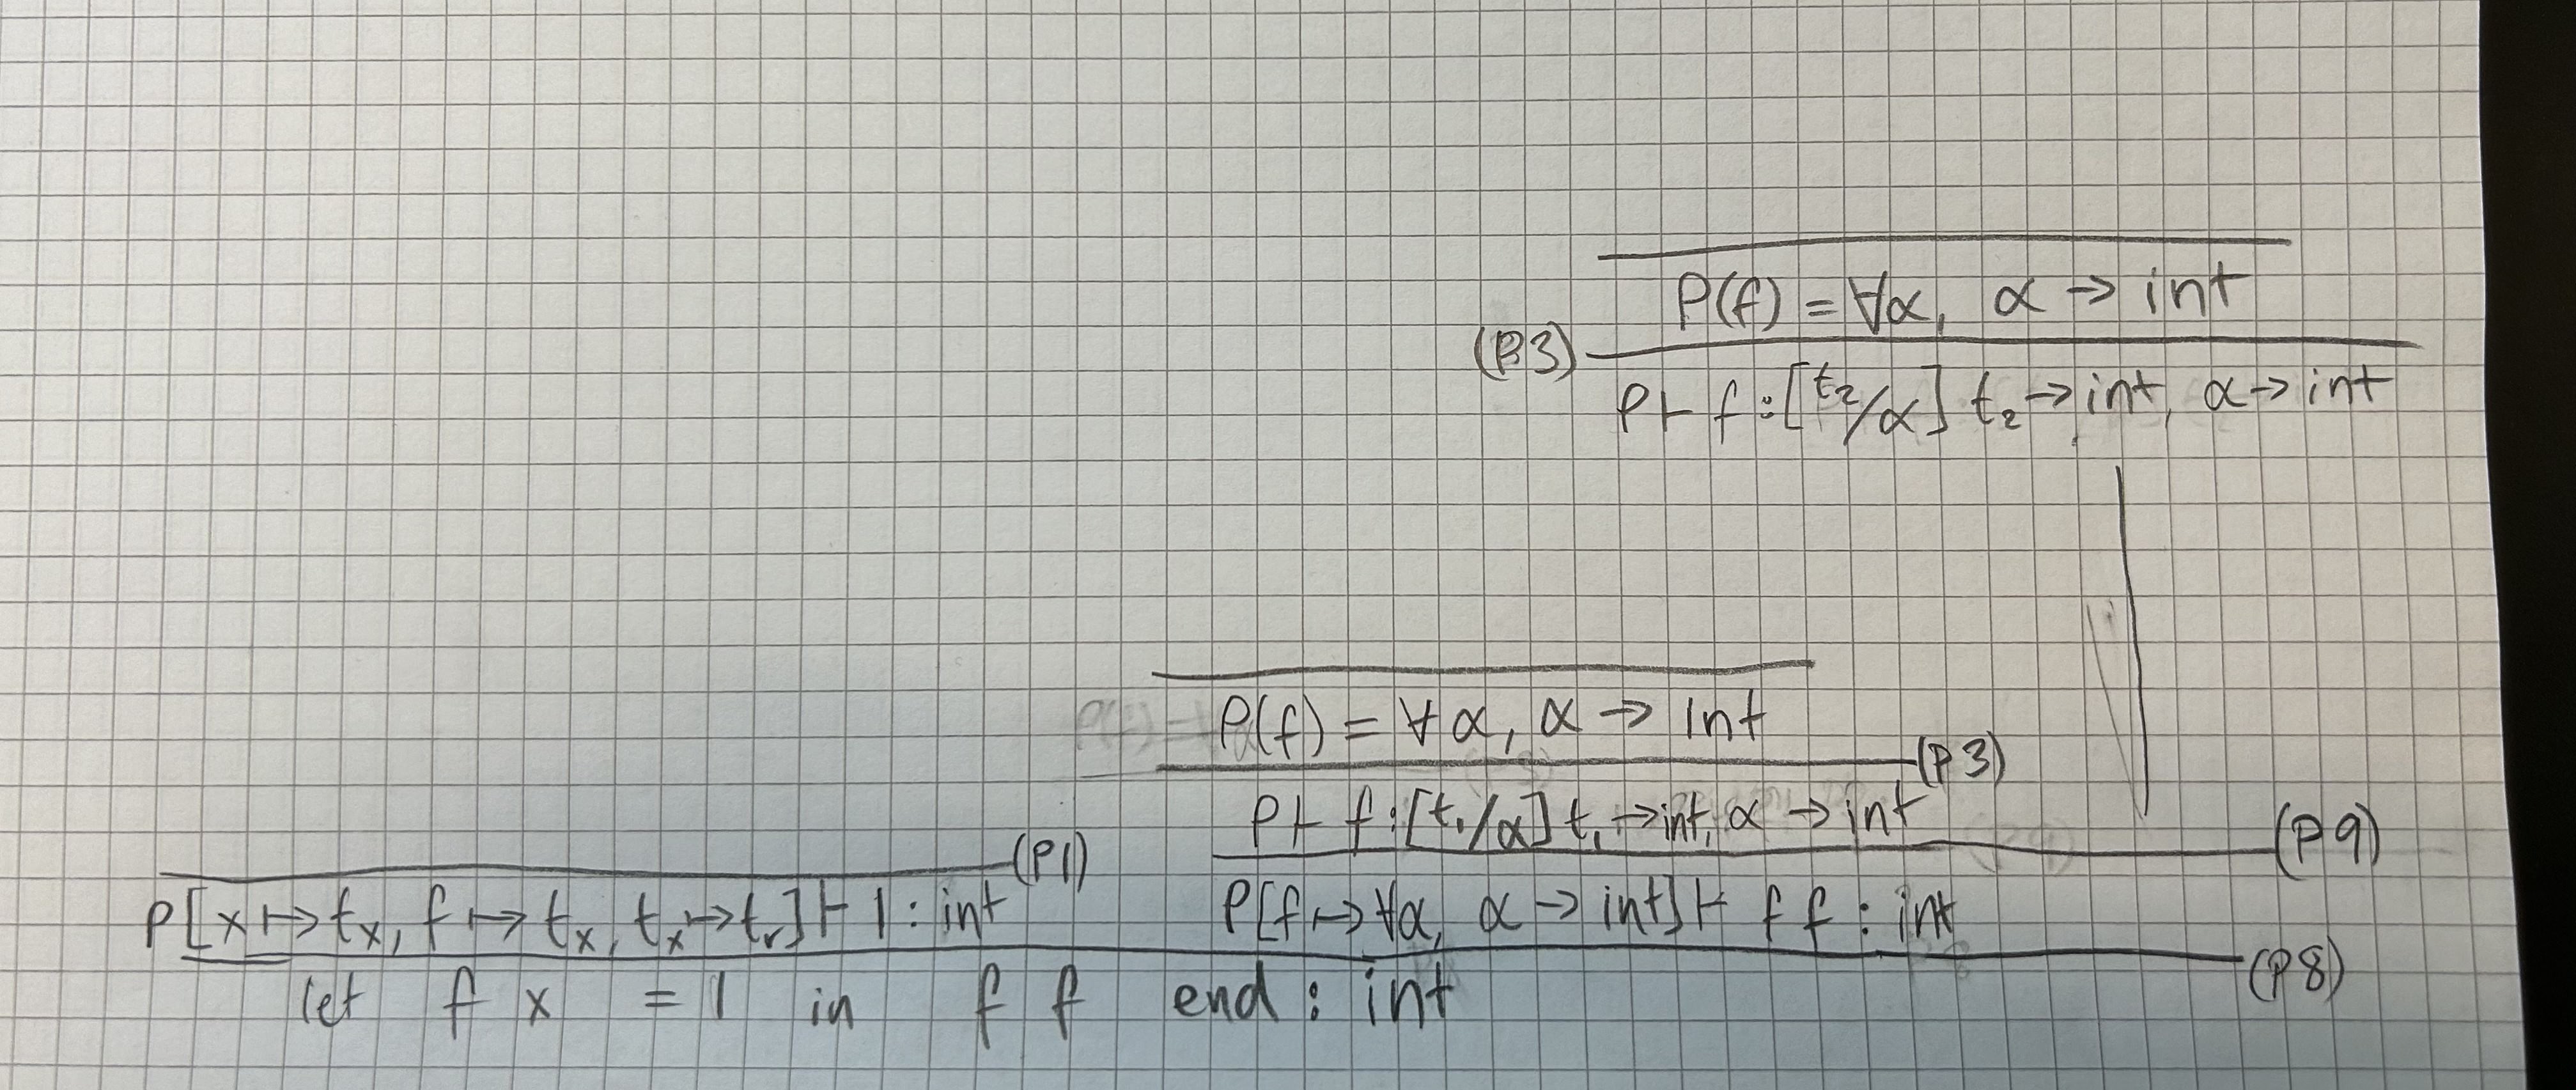 ρ(f) = ∀α, α → int
(p3)
ρ ⊢ f : [t₂/α] t₂ → int, α → int
ρ(f) = ∀α, α → int
(p3)
ρ ⊢ f : [t₁/α] t₁ → int, α → int
(p1) (p9)
ρ[x ↦ tₓ, f ↦ tₓ, tₓ ↦ tᵣ] ⊢ 1 : int ρ[f ↦ ∀α, α → int] ⊢ f f : int
(p8)
let f x = 1 in f f end : int